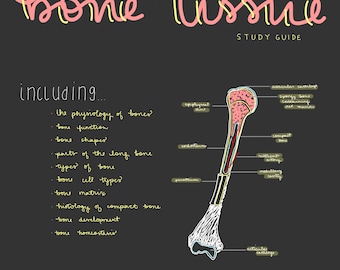 bone tissue
STUDY GUIDE
including...
· the physiology of bones
· bone function
· bone shapes
· parts of the long bone
· types of bone
· bone cell types
· bone matrix
· histology of compact bone
· bone development
· bone homeostasis
articular cartilage
epiphyseal plate
spongy bone
containing
red marrow
compact bone
endosteum
medullary cavity
periosteum
articular cartilage